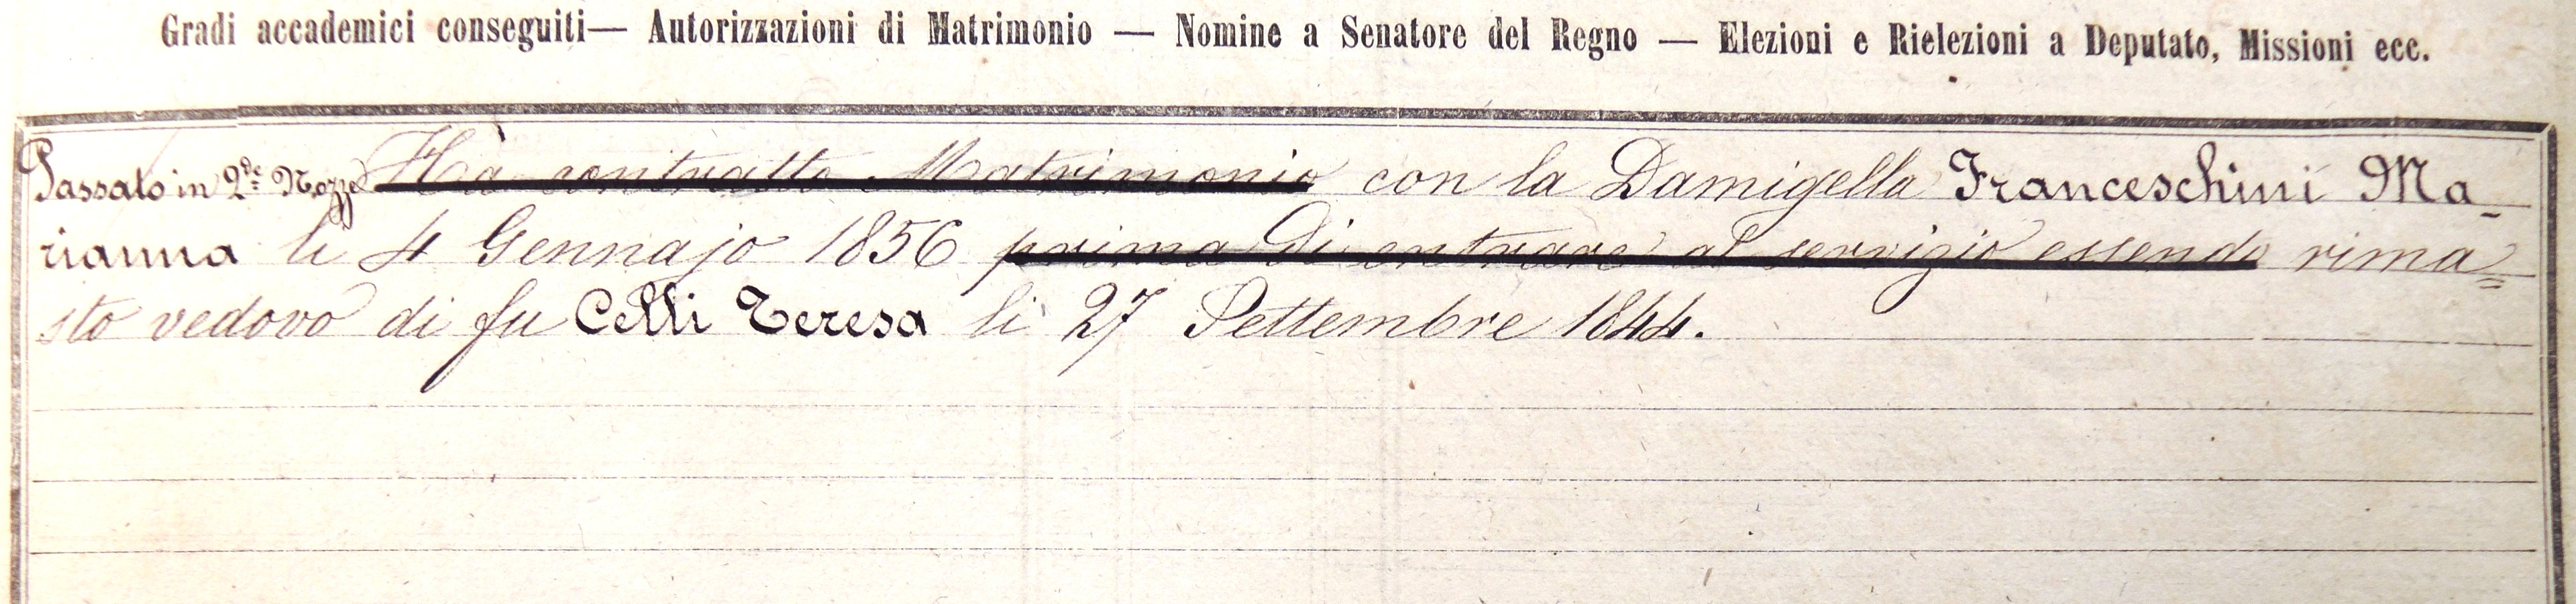 Gradi accademici conseguiti— Autorizzazioni di Matrimonio — Nomine a Senatore del Regno — Elezioni e Rielezioni a Deputato, Missioni ecc.
Passato in 2de Nozze Ha contratto Matrimonio con la Damigella Franceschini Ma-
rianna li 4 Gennajo 1856 prima di entrare al servizio essendo rima=
sto vedovo di fu Celli Teresa li 27 Settembre 1844.